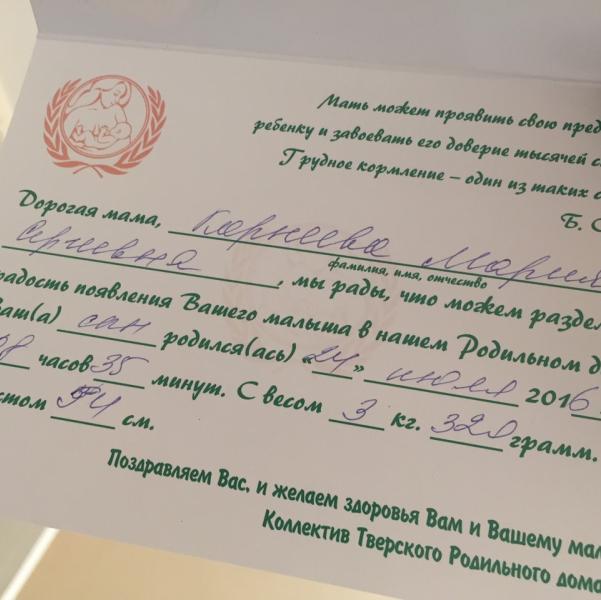 Мать может проявить свою пред
ребенку и завоевать его доверие тысячей с
Грудное кормление – один из таких с
Б. С
Дорогая мама, Корнеева Мария
Сергеевна, мы рады, что можем раздел
фамилия, имя, отчество
радость появления Вашего малыша в нашем Родильном д
Ваш(а) сын родился(ась) «24» июля 2016
08 часов 35 минут. С весом 3 кг. 320 грамм.
стом 54 см.
Поздравляем Вас, и желаем здоровья Вам и Вашему мал
Коллектив Тверского Родильного дома